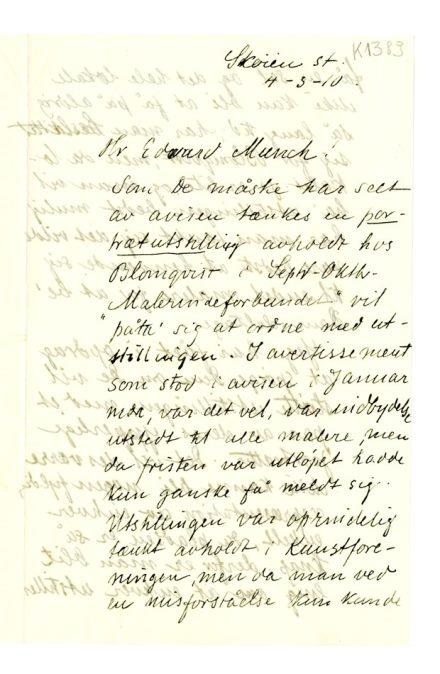 K1383
Skøien st.
4-3-10.
Hr. Edvard Munch!
Som De måske har seet
av avisen tænkes en por-
trætutstilling avholdt hos
Blomqvist i Septb-Oktb-
"Malerindeforbundet" vil
"påta" sig at ordne med ut-
stillingen. I avertissement
som stod i avisen i Januar
mdr, var det vel, var indbydelse
utstedt til alle malere, men
da fristen var utløpet hadde
kun ganske få meldt sig.
Utstillingen var oprindelig
tænkt avholdt i Kunstfore-
ningen, men da man ved
en misforståelse kun kunde